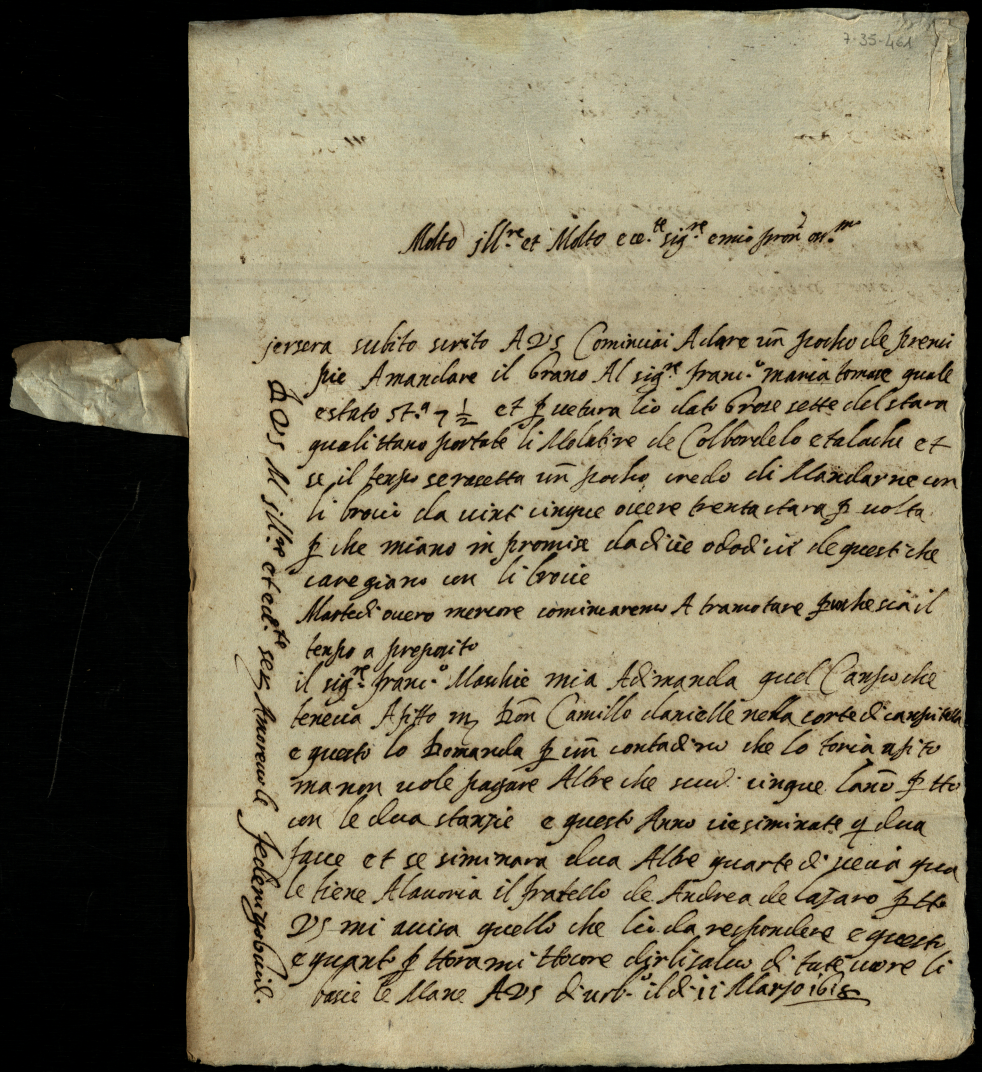 7-35-461
Molto jll.re et Molto ecc.te sig.re e mio pron. oss.mo
jersera subito scrito A VS Cominciai A dare un pocho de prenci
pie A mandare il Grano Al sig.re franc.o maria tomase quale
e stato st.a 7 1/2 et p uetura lio dato Grose sette del stara
qualittano portate li Molatire de Colbordelo e talache et
se il tenpo se rasetta un pocho credo di Mandarne con
li brocci da vint cinque overe trenta stara p uolta
p che miano in promise da dicie o dodicii de questi che
caregiano con li brocie
Martedi overo mercore cominciaremo A tramotare p che sia il
tenpo a preposito
il sig.re franc.o Maschie mia Adimanda quel Canpo che
teneva A fitto m Don Camillo danielle nella corte di canpitella
e questo lo Domanda p un contadino che lo toria a fito
ma non uole pagare Altre che scudi cinque lano p tto
con le dua stanzie e questo Anno cie siminate dua
face et se siminara dua Altre quarte di vecia qua
le tiene A lavoria il fratello de Andrea de lazaro p tto
VS mi avisa quello che lio da respondere e questo
e quanto p ttora mi ttocore dirli salvo di tute core li
bacie le Mane A VS di urb.o il di 11 Marzo 1618
Di VS M jll.re et ecc.te ser. Amorevole